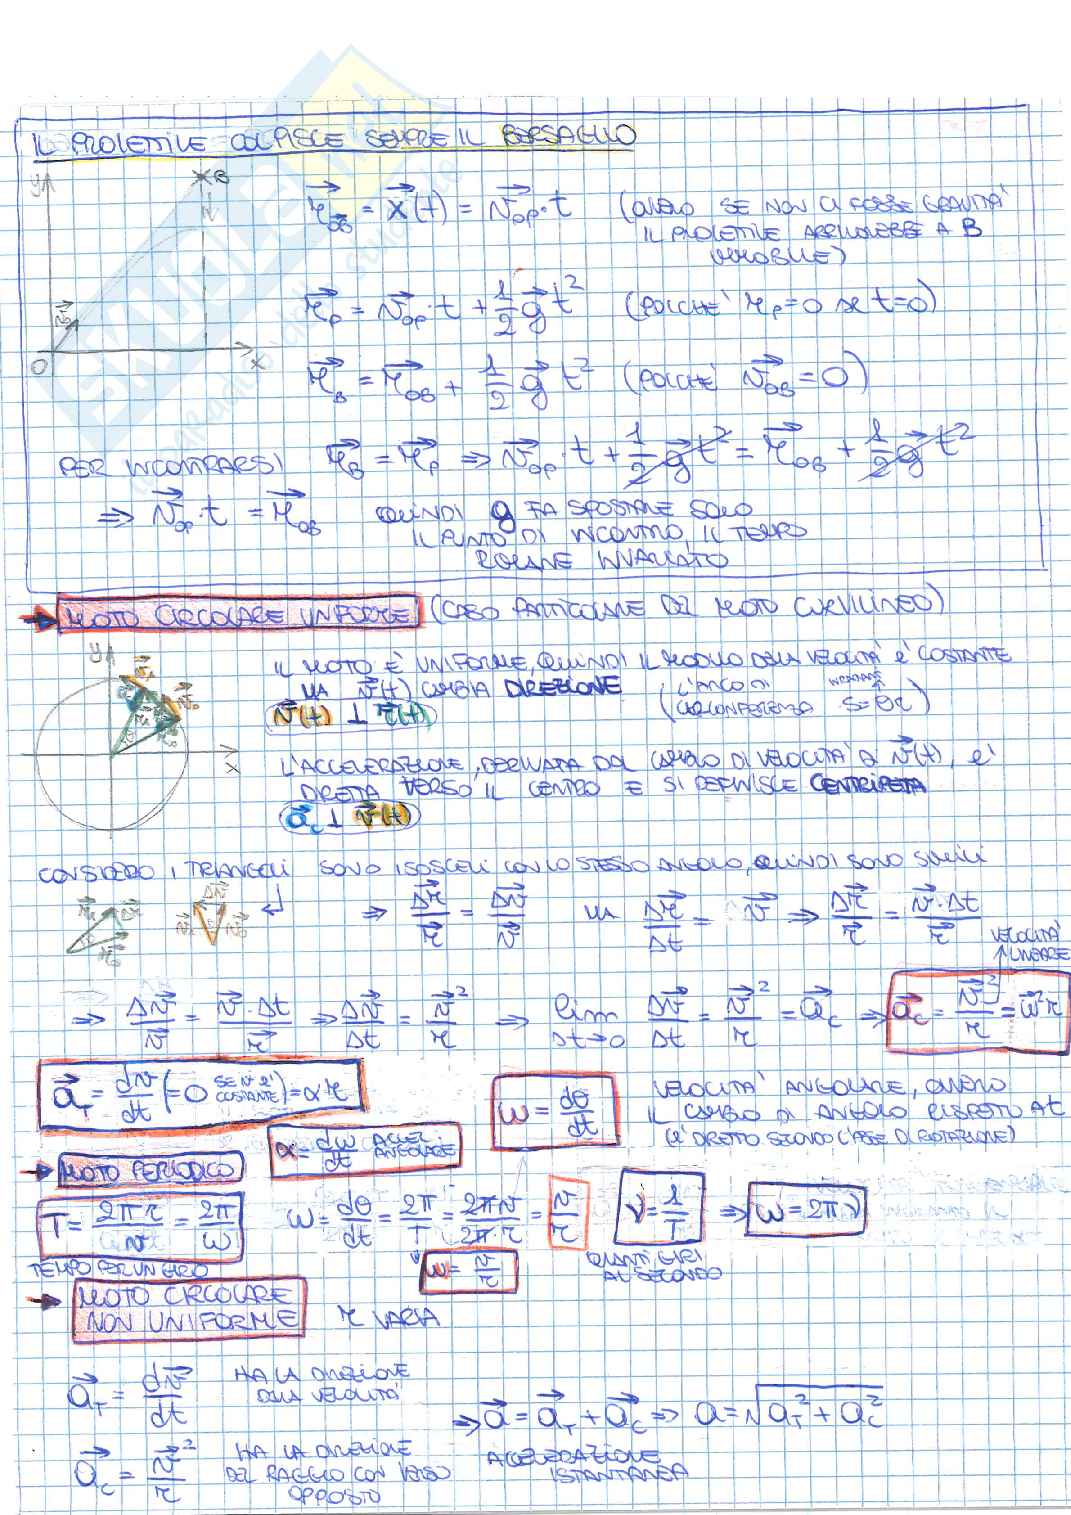 IL PROIETTILE COLPISCE SEMPRE IL BERSAGLIO
y
B
r⃗_OB = x⃗(t) = v⃗_OP · t (OVVERO SE NON CI FOSSE GRAVITA'
IL PROIETTILE ARRIVEREBBE A B
IMMOBILE)
r⃗_P = v⃗_OP · t + 1/2 g⃗ t² (POICHE' r_P = 0 se t=0)
O
x
r⃗_B = r⃗_OB + 1/2 g⃗ t² (POICHE' v⃗_OB = 0)
PER INCONTRARSI r⃗_B = r⃗_P ⇒ v⃗_OP · t + 1/2 g⃗ t² = r⃗_OB + 1/2 g⃗ t²
⇒ v⃗_OP · t = r⃗_OB QUINDI g FA SPOSTARE SOLO
IL PUNTO DI INCONTRO, IL TEMPO
RIMANE INVARIATO
→ MOTO CIRCOLARE UNIFORME (CASO PARTICOLARE DEL MOTO CURVILINEO)
y
x
IL MOTO E' UNIFORME, QUINDI IL MODULO DELLA VELOCITA' E' COSTANTE
MA v⃗(t) CAMBIA DIREZIONE (L'ARCO DI
CIRCONFERENZA S=θr)
v⃗(t) ⊥ r⃗(t)
L'ACCELERAZIONE, DERIVATA DAL CAMBIO DI VELOCITA' DI v⃗(t), E'
DIRETTA VERSO IL CENTRO E SI DEFINISCE CENTRIPETA
a⃗_c ⊥ v⃗(t)
CONSIDERO I TRIANGOLI SONO ISOSCELI CON LO STESSO ANGOLO, QUINDI SONO SIMILI
⇒ Δr⃗/r⃗ = Δv⃗/v⃗ MA Δr⃗/Δt = v⃗ ⇒ Δr⃗/r⃗ = v⃗·Δt/r⃗
VELOCITA'
LINEARE
⇒ Δv⃗/v⃗ = v⃗·Δt/r⃗ ⇒ Δv⃗/Δt = v⃗²/r ⇒ lim Δt→0 Δv⃗/Δt = v⃗²/r = a⃗_c ⇒ a⃗_c = v⃗²/r = ω⃗²r
a⃗_T = dv/dt (=0 SE v E' COSTANTE) = α r
ω = dθ/dt VELOCITA' ANGOLARE, OVVERO
IL CAMBIO DI ANGOLO RISPETTO A t
(E' DIRETTO SECONDO L'ASSE DI ROTAZIONE)
α = dω/dt ACCEL. ANGOLARE
→ MOTO PERIODICO
T = 2πr/v = 2π/ω
ω = dθ/dt = 2π/T = 2πv/2π·r = v/r
ν = 1/T ⇒ ω = 2πν
TEMPO PER UN GIRO
ω = v/r
QUANTI GIRI
AL SECONDO
→ MOTO CIRCOLARE
NON UNIFORME r VARIA
a⃗_T = dv⃗/dt HA LA DIREZIONE
DELLA VELOCITA'
⇒ a⃗ = a⃗_T + a⃗_c ⇒ a = √(a_T² + a_c²)
a⃗_c = v⃗²/r HA LA DIREZIONE
DEL RAGGIO CON VERSO
OPPOSTO
ACCELERAZIONE
ISTANTANEA